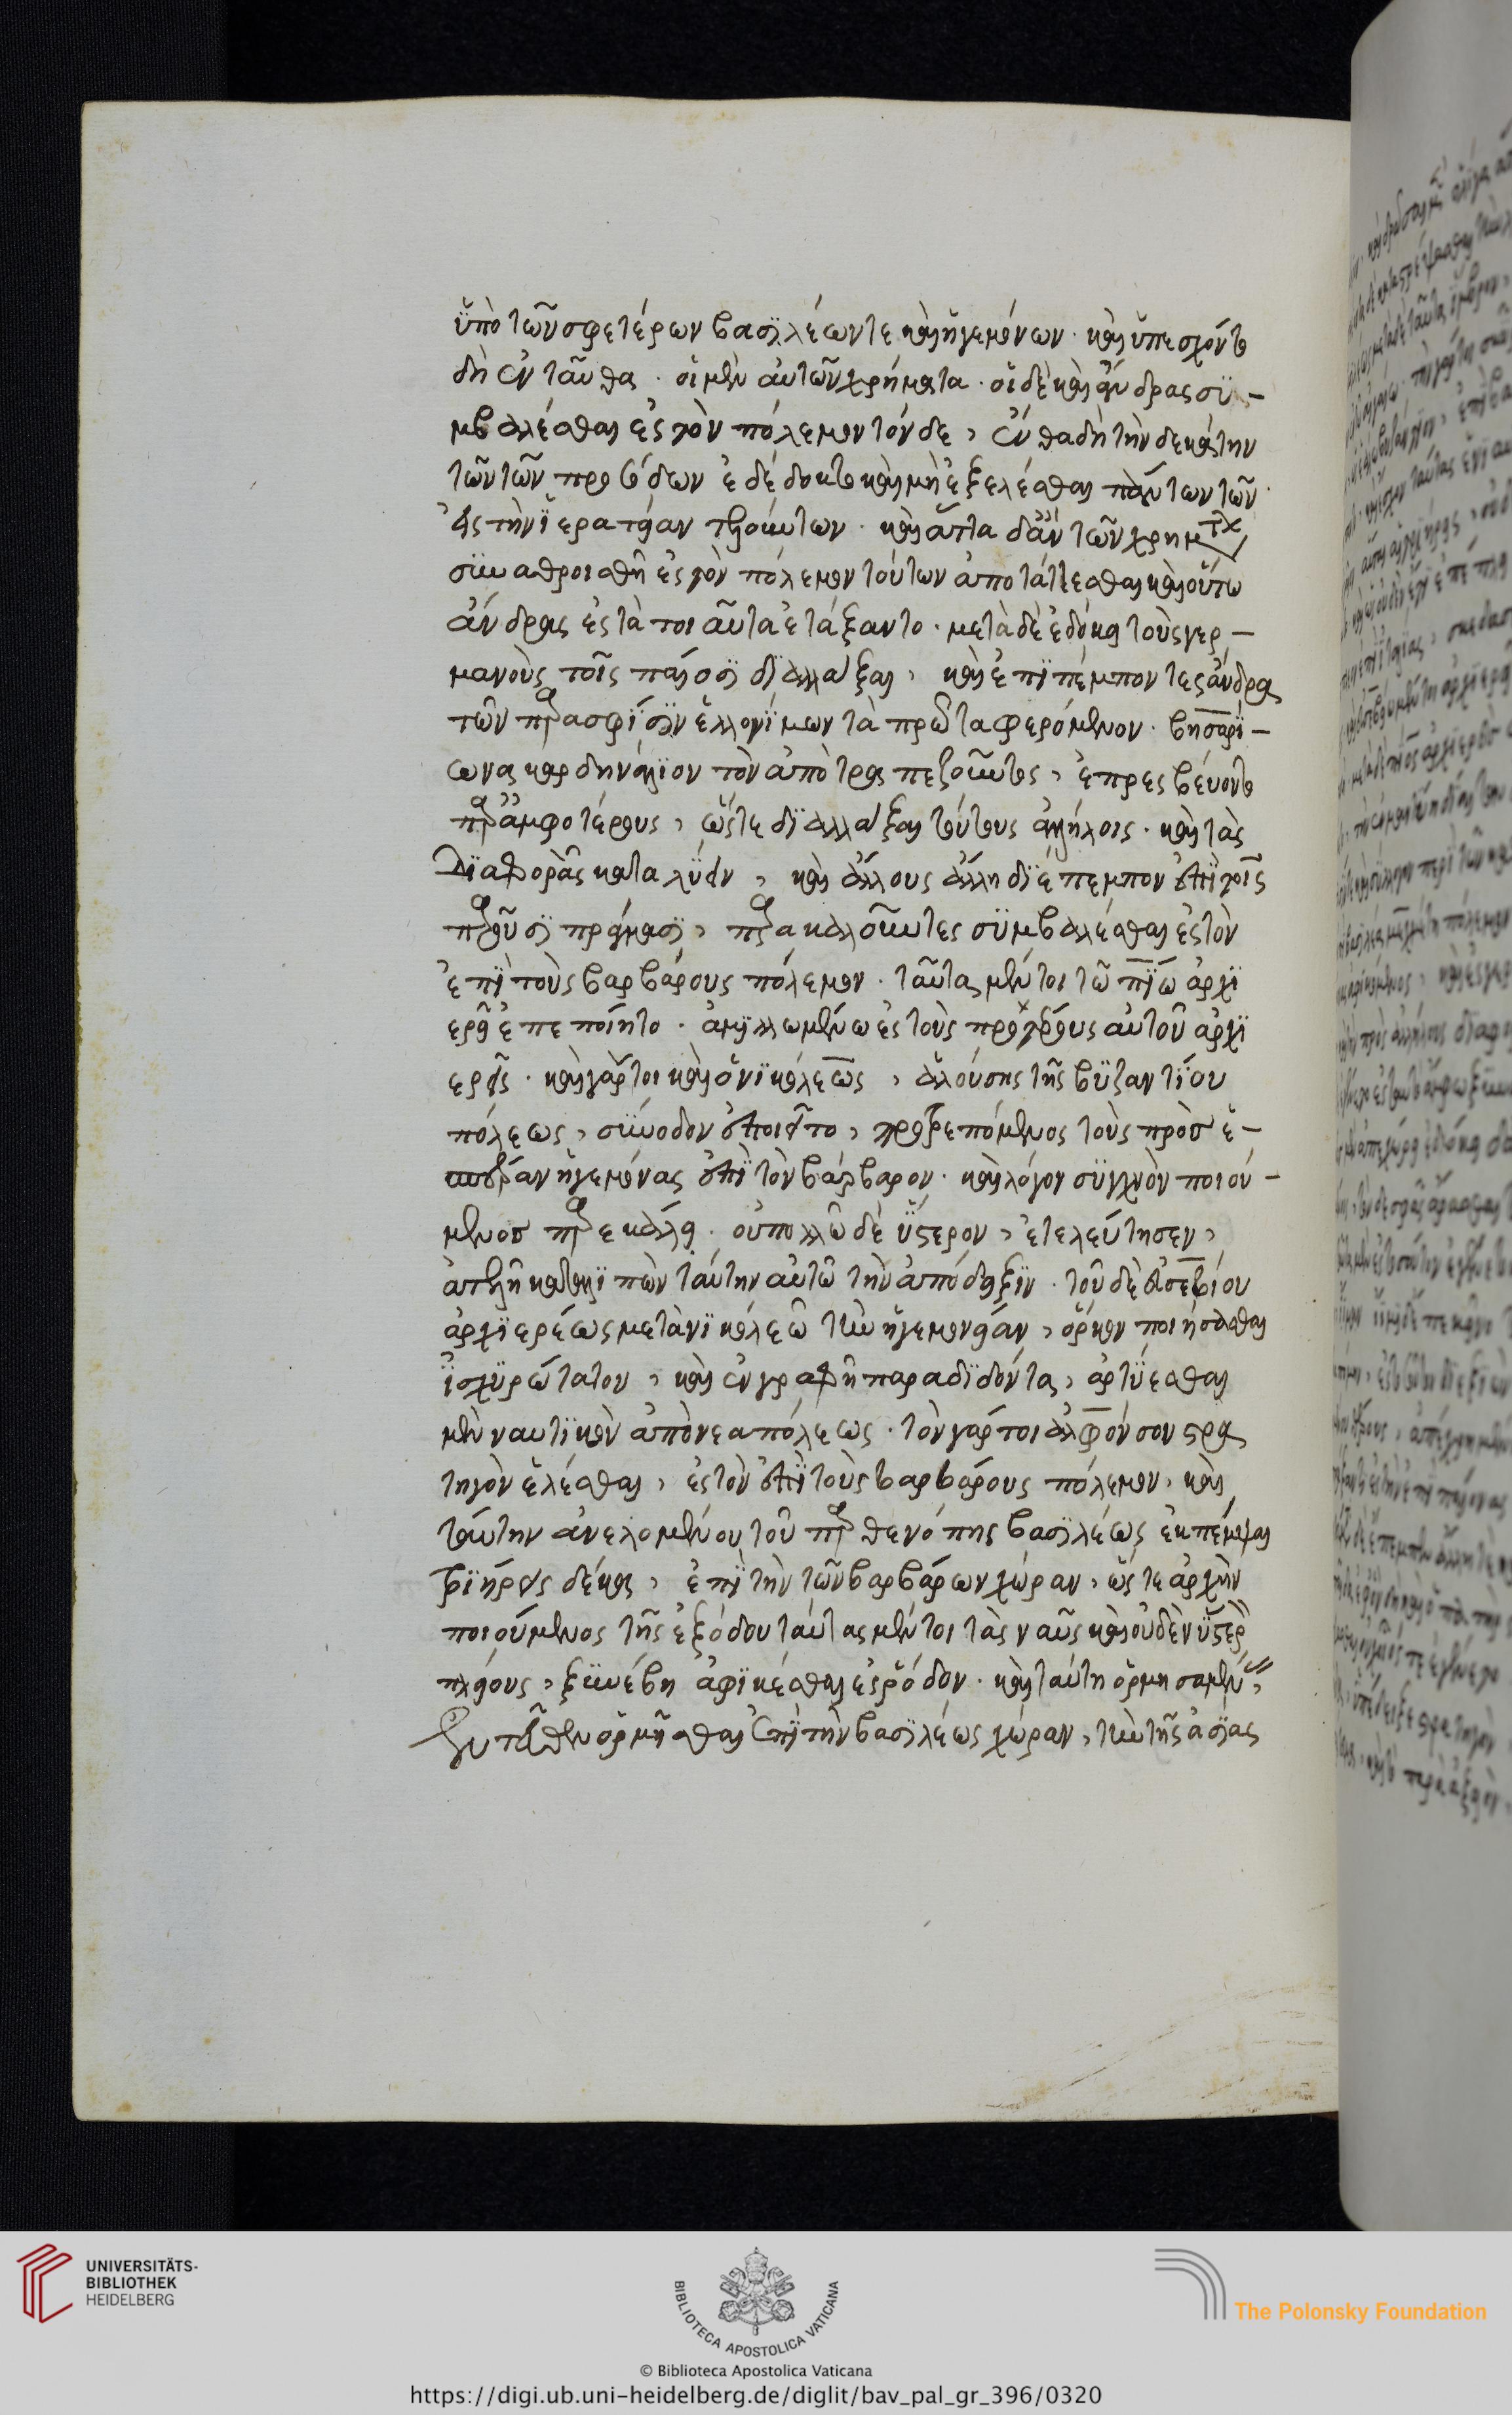 ὑπὸ τῶν σφετέρων βασιλέων τε καὶ ἡγεμόνων. καὶ ὑπεσχόντο
δὴ ἐνταῦθα. οἱ μὲν αὐτῶν χρήματα. οἱ δὲ καὶ ἄνδρας συ-
μβαλέσθαι ἐς τὸν πόλεμον τόνδε, ἔνθα δὴ τὴν δεκάτην
τῶν τῶν προσόδων ἐδέδοκτο καὶ μὴ ἐξελέσθαι πάντων τῶν
ἐς τὴν ἱερατείαν τελούντων. καὶ ἅττα δ' ἂν τῶν χρημάτων
συναθροισθῆ ἐς τὸν πόλεμον τούτων ἀποτάττεσθαι καὶ οὕτω
ἄνδρας ἐς τὰ τοιαῦτα ἐτάξαντο. μετὰ δὲ ἐδόκει τοὺς γερ-
μανοὺς τοῖς παίοσι διαλλάξαι, καὶ ἐπιπέμποντες ἄνδρα
τῶν παρὰ σφίσιν ἐλλογίμων τὰ πρῶτα φερόμενον. βησαρί-
ωνα καρδηνάλιον τὸν ἀπὸ τραπεζοῦντος, ἐπρεσβεύοντο
παρ' ἀμφοτέρους, ὥστε διαλλάξαι τούτους ἀλλήλοις. καὶ τὰς
διαφορὰς καταλύειν, καὶ ἄλλους ἄλλη διέπεμπον ἐπὶ τοῖς
παροῦσι πράγμασι, παρακαλοῦντες συμβαλέσθαι ἐς τὸν
ἐπὶ τοὺς βαρβάρους πόλεμον. ταῦτα μέντοι τῶ πίω ἀρχι
ερεῖ ἐπεποίητο. ἁμιλλωμένω ἐς τοὺς προτέρους αὐτοῦ ἀρχι
ερεῖς. καὶ γάρ τοι καὶ ὁ νικόλεως, ἁλούσης τῆς βυζαντίου
πόλεως, σύνοδον ἐποιεῖτο, προτρεπόμενος τοὺς πρὸς ἑ-
σπέραν ἡγεμόνας ἐπὶ τὸν βάρβαρον. καὶ λόγον συχνὸν ποιού-
μενος παρεκάλει. οὐ πολλῶ δὲ ὕστερον, ἐτελεύτησεν,
ἀτελῆ καταλιπὼν ταύτην αὐτῶ τὴν ἀπόδειξιν. τοῦ δὲ εὐσεβίου
ἀρχιερέως μετὰ νικόλεω τὴν ἡγεμονείαν, ὅρκον ποιήσασθαι
ἰσχυρώτατον, καὶ ἐν γραφῆ παραδιδόντα, ἀρτύεσθαι
μὲν ναυτικὸν ἀπὸ νεαπόλεως. τὸν γάρ τοι ἀλφόνσον στρα
τηγὸν ἑλέσθαι, ἐς τὸν ἐπὶ τοὺς βαρβάρους πόλεμον, καὶ
ταύτην ἀνελομένου τοῦ παρθενόπης βασιλέως ἐκπέμψαι
τριήρεις δέκα, ἐπὶ τὴν τῶν βαρβάρων χώραν, ὥστε ἀρχὴν
ποιούμενος τῆς ἐξόδου ταύτας μέντοι τὰς ναῦς καὶ οὐδὲν ὕστερον
πλείους, ξυνέβη ἀφικέσθαι ἐς ῥόδον. καὶ ταύτη ὁρμησαμένων,
ἐντεῦθεν ὁρμῆσθαι ἐπὶ τὴν βασιλέως χώραν, τὴν τῆς ἀσίας
UNIVERSITÄTS-
BIBLIOTHEK
HEIDELBERG
BIBLIOTECA APOSTOLICA VATICANA
The Polonsky Foundation
© Biblioteca Apostolica Vaticana
https://digi.ub.uni-heidelberg.de/diglit/bav_pal_gr_396/0320